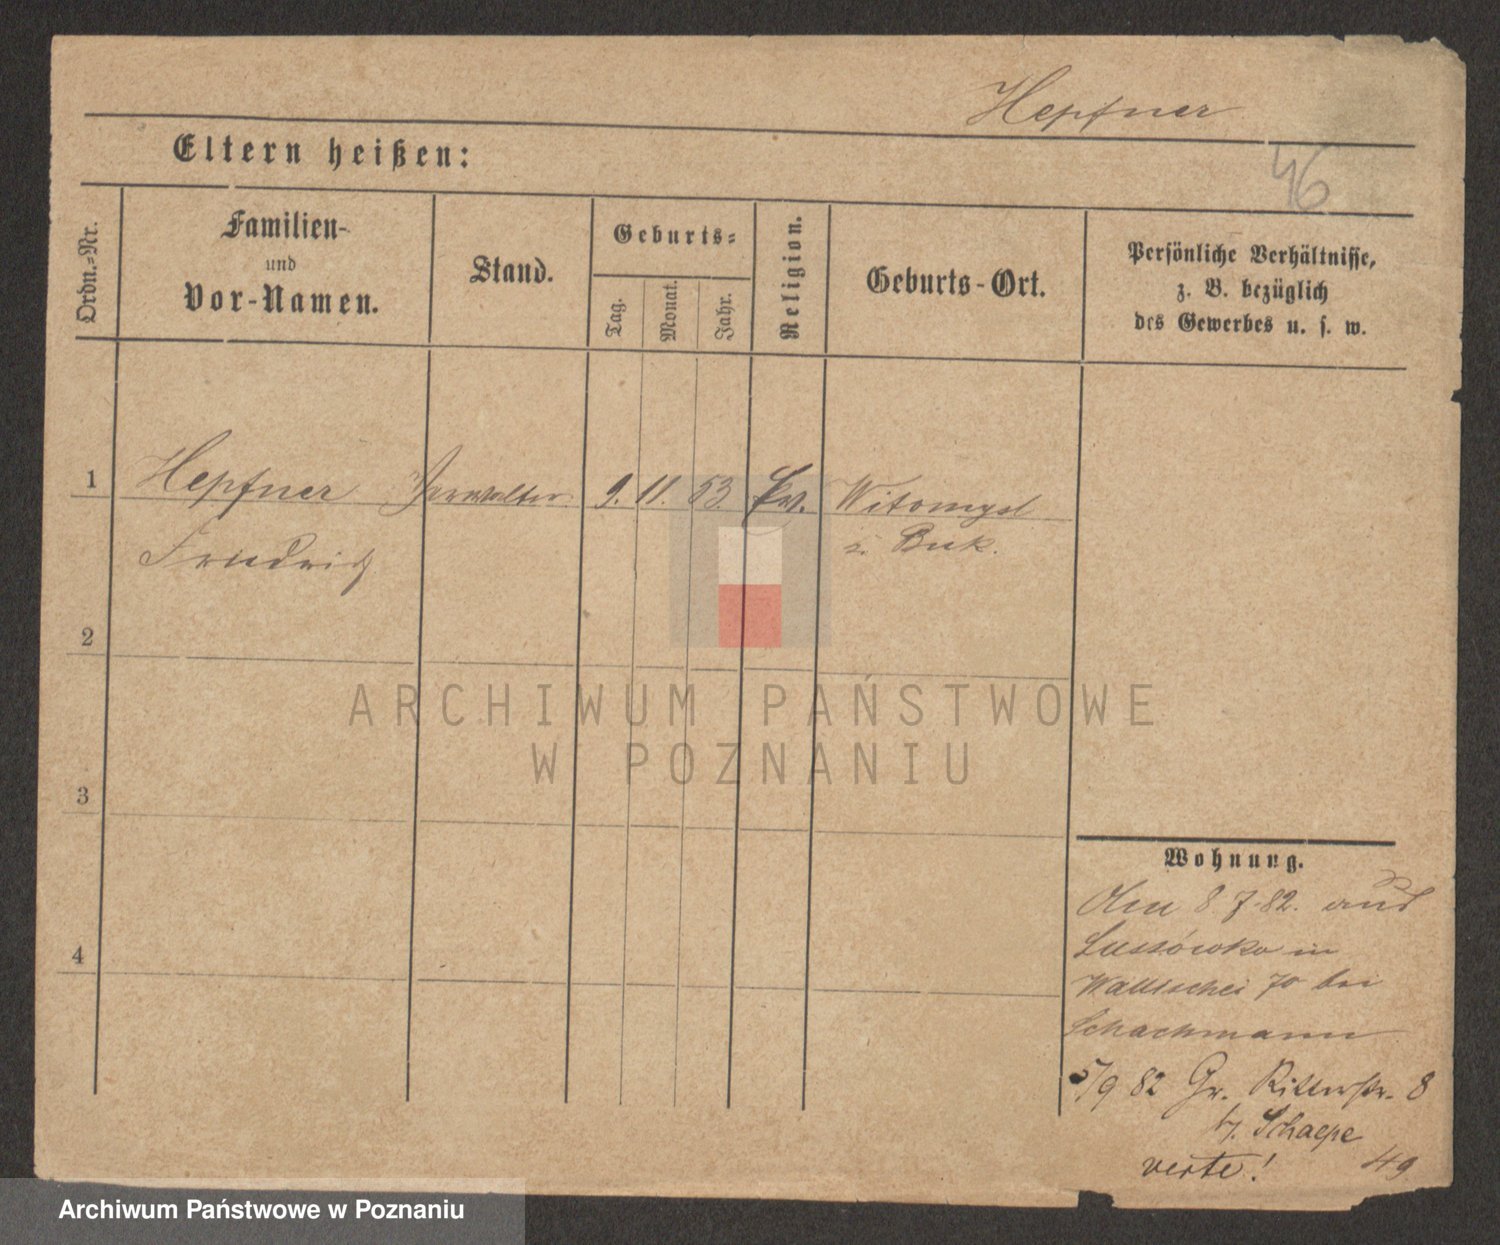 Hepfner
Eltern heißen:
46
Ordn.-Nr.
Familien-
und
Vor-Namen.
Stand.
Geburts-
Tag.
Monat.
Jahr.
Religion.
Geburts-Ort.
Persönliche Verhältnisse,
z. B. bezüglich
des Gewerbes u. s. w.
1 Hepfner Verwalter 9. 11. 53. Ev. Witomysl
Friedrich z. Buk.
2
3
4
Wohnung.
Den 8 7.82. aus
Lussówko in
Wallischei 70 bei
Schachmann
5/9 82 Gr. Ritterstr. 8
b/. Schaepe
verte! 49
ARCHIWUM PAŃSTWOWE
W POZNANIU
Archiwum Państwowe w Poznaniu